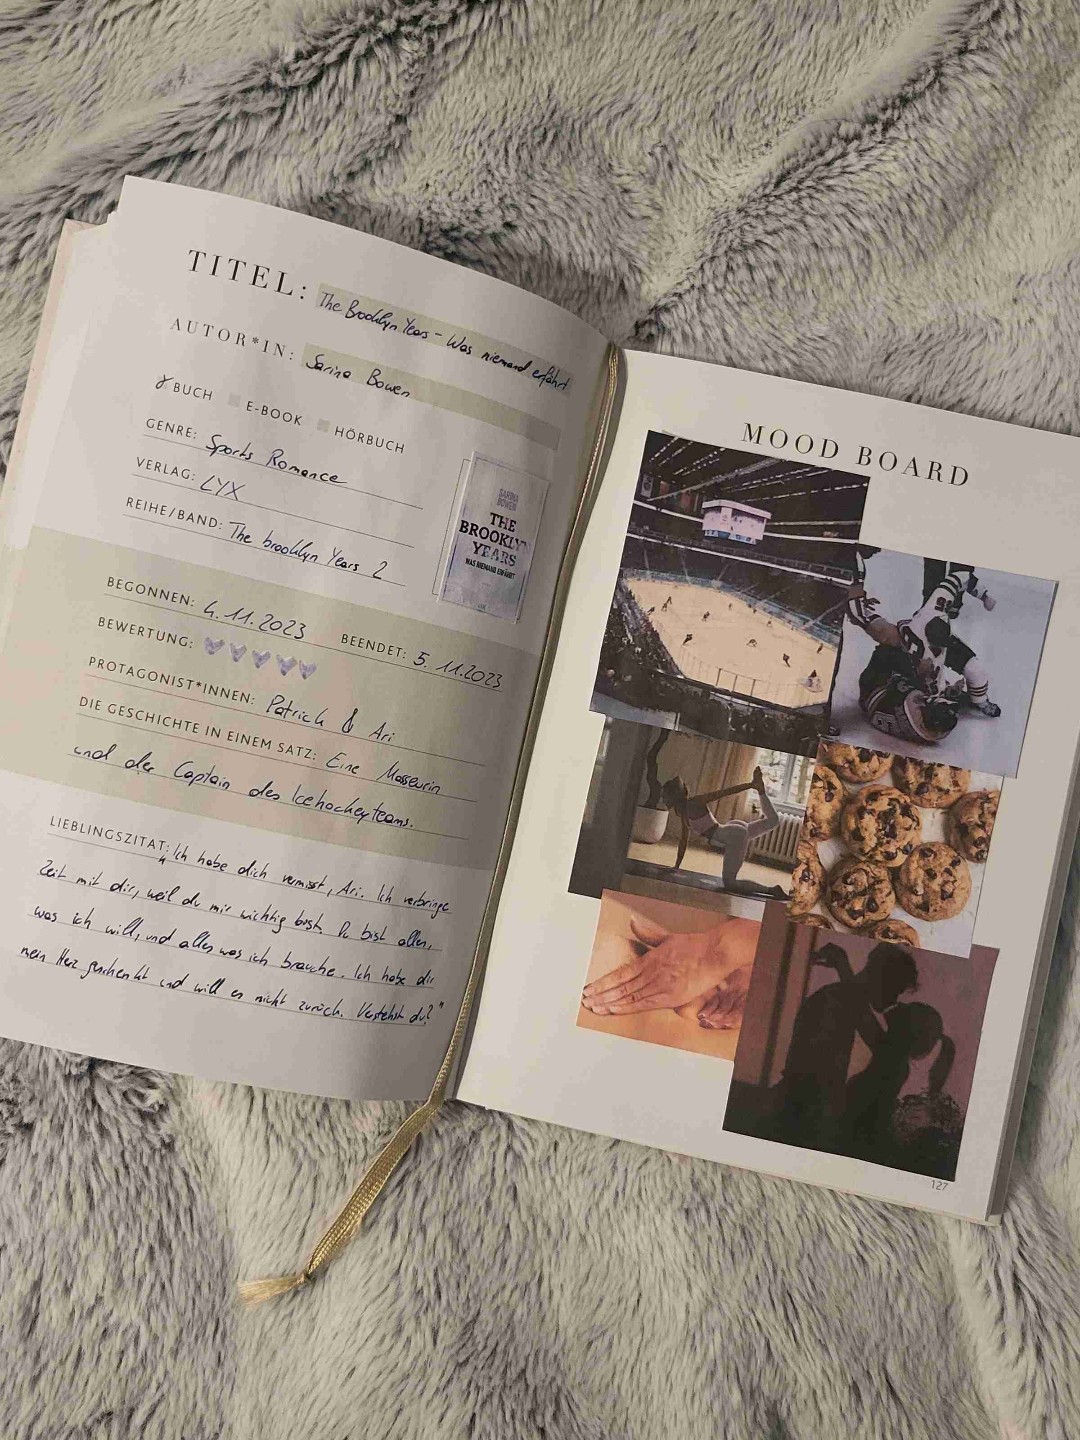 TITEL: The Brooklyn Years - Was niemand erfährt
AUTOR*IN: Sarina Bowen
BUCH E-BOOK HÖRBUCH
GENRE: Sports Romance
VERLAG: LYX
REIHE/BAND: The brooklyn Years 2
SARINA
BOWEN
THE
BROOKLYN
YEARS
WAS NIEMAND ERFÄHRT
BEGONNEN: 4.11.2023 BEENDET: 5.11.2023
BEWERTUNG:
PROTAGONIST*INNEN: Patrick & Ari
DIE GESCHICHTE IN EINEM SATZ: Eine Masseurin
und der Captain des Icehockeyteams.
LIEBLINGSZITAT: "Ich habe dich vermisst, Ari. Ich verbringe
Zeit mit dir, weil du mir wichtig bist. Du bist alles,
was ich will, und alles was ich brauche. Ich habe dir
mein Herz geschenkt und will es nicht zurück. Verstehst du?"
MOOD BOARD
127